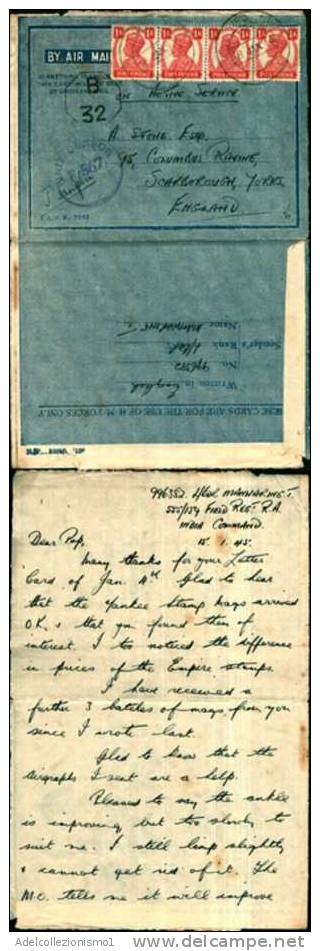 BY AIR MAIL
B
32
ON ACTIVE SERVICE
A. Stone Esq.
95, Columbus Ravine,
Scarborough, Yorks,
England.
Written in English
No. 996352
Sender's Rank
Name
THESE CARDS ARE FOR THE USE OF H.M. FORCES ONLY
996352. MANWARING T.
555/159 Field Regt. R.A.
India Command.
15. 1. 45.
Dear Pop,
Many thanks for your Letter
Card of Jan. 4th Glad to hear
that the Yankee Stamp mags arrived
O.K. & that you found them of
interest. I to noticed the difference
in prices of the Empire stamps.
I have received a
further 3 batches of mags from you
since I wrote last.
Glad to know that the
Airgraphs I sent are a help.
Pleased to say the ankle
is improving but too slowly to
suit me. I still limp slightly
& cannot get rid of it. The
M.O. tells me it will improve
Adelcollezionismo1
delcampe.net